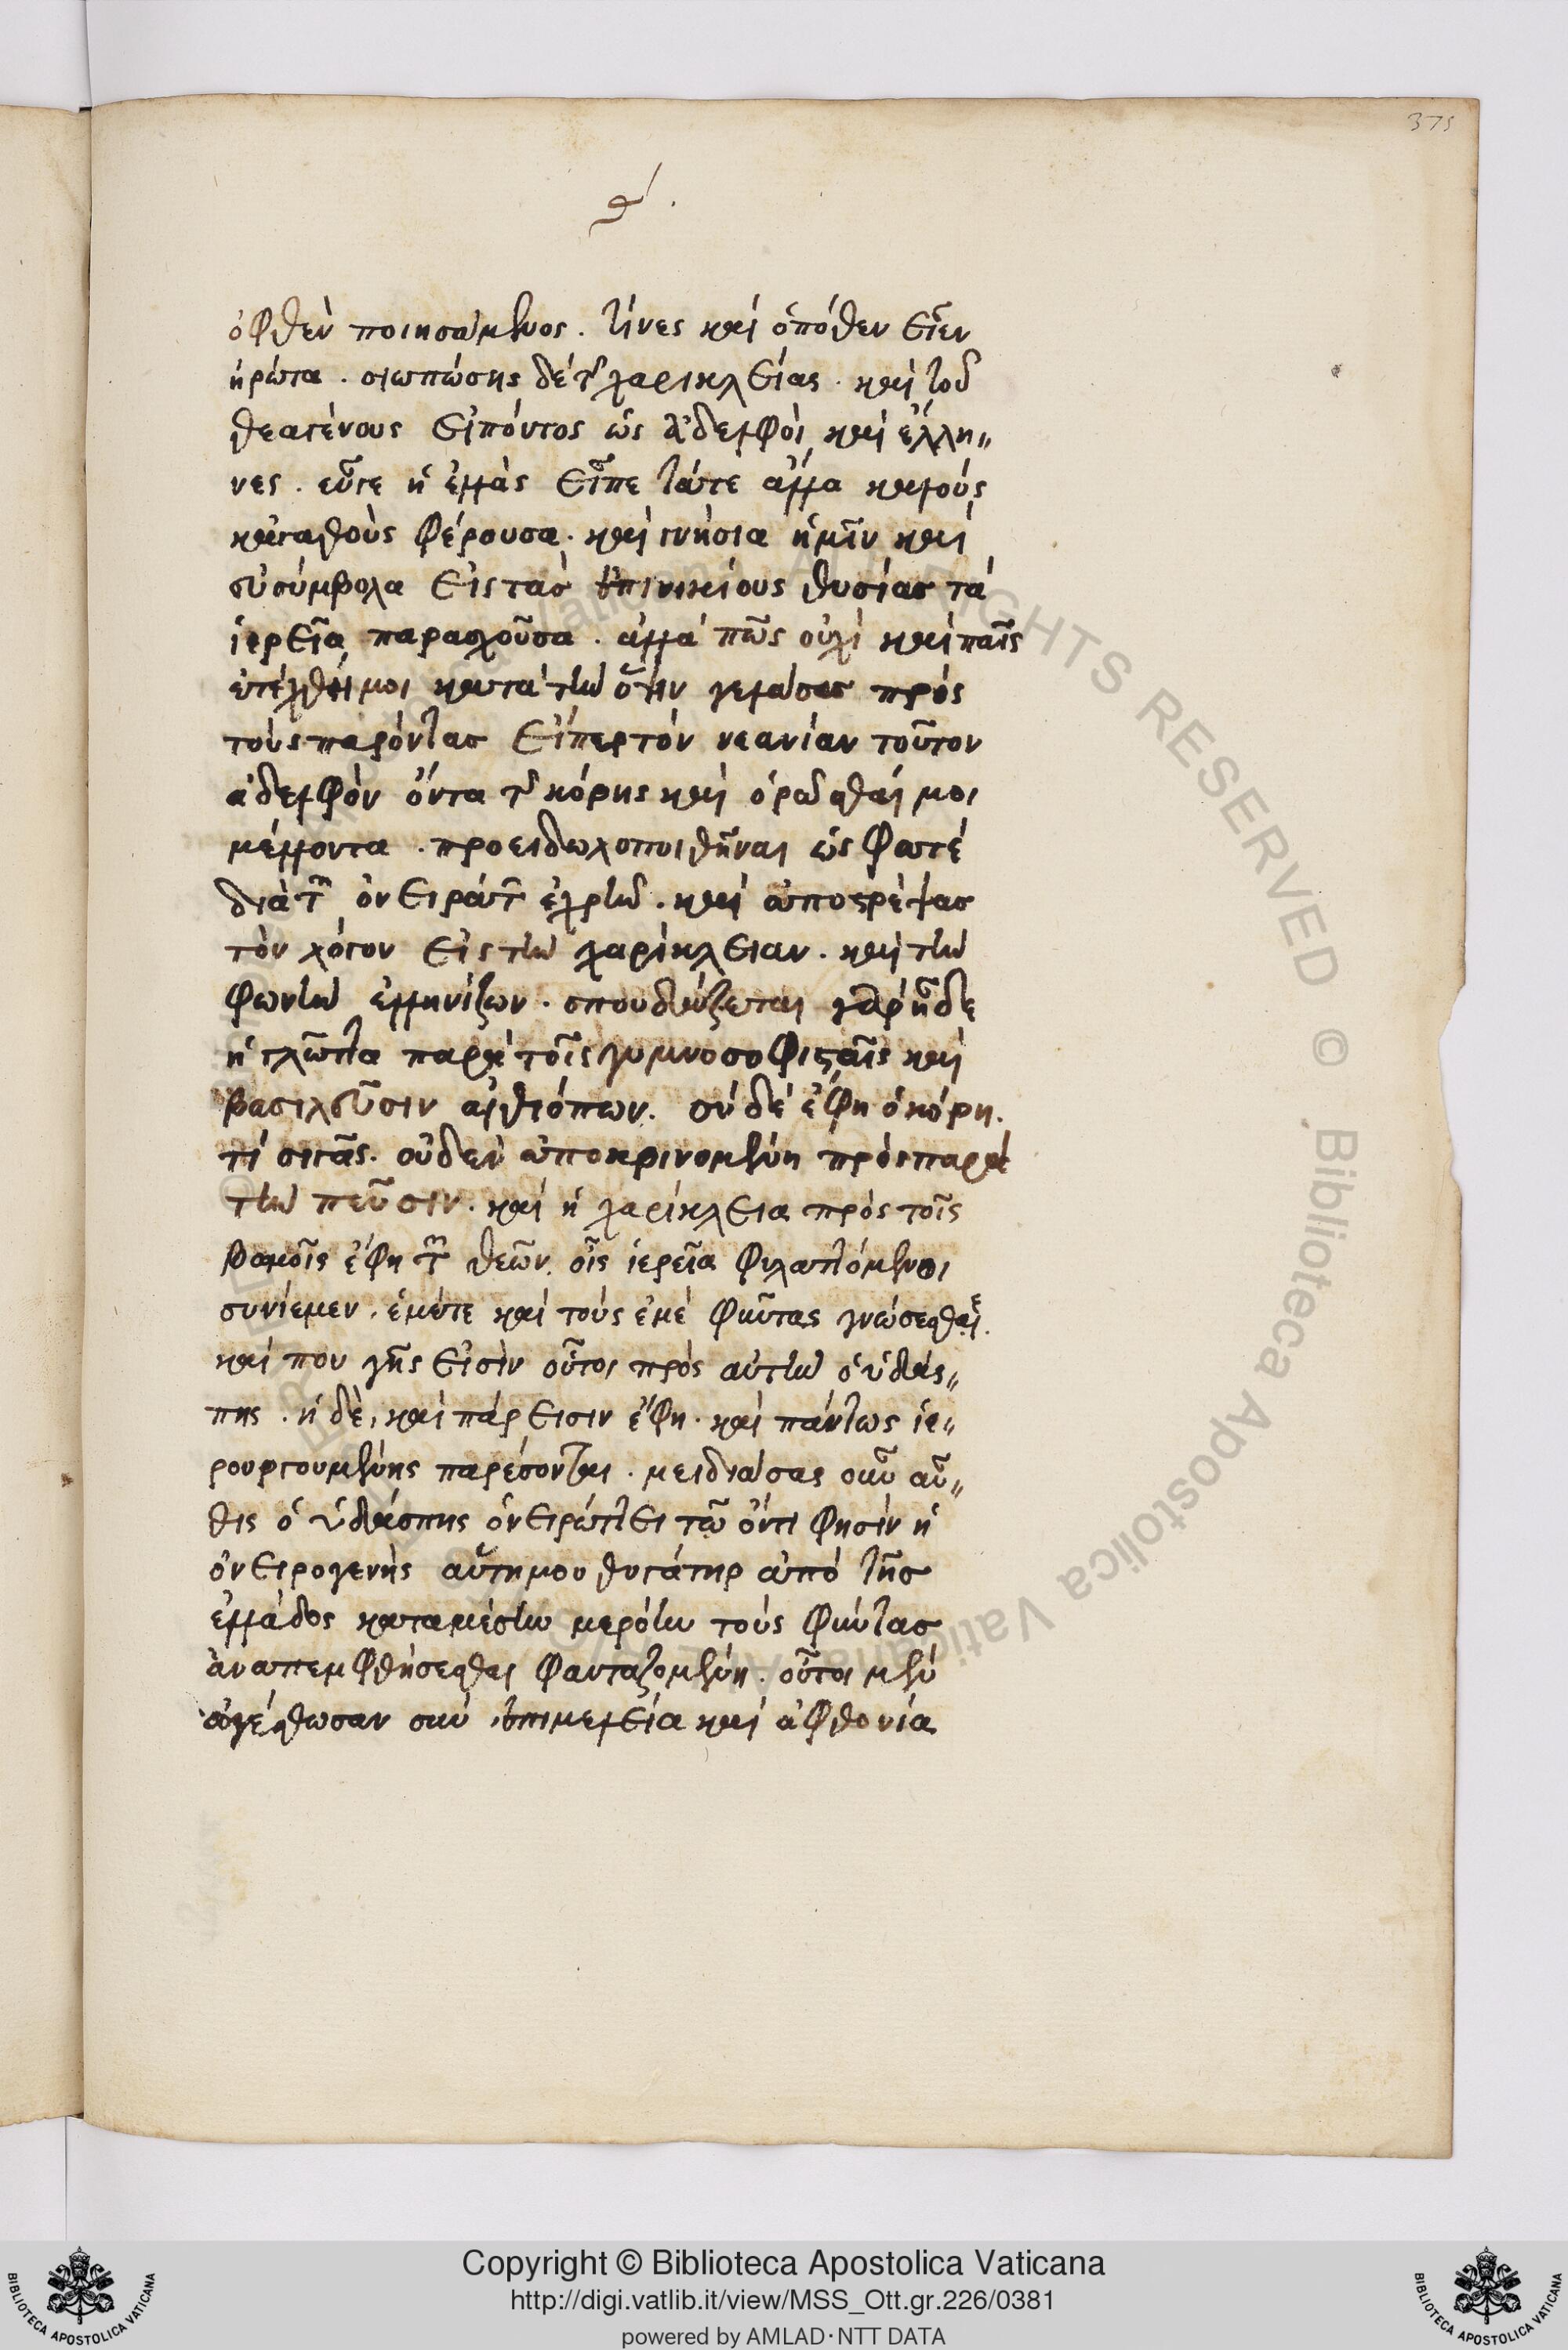 375
θ′.
ὀφθὲν ποιησάμενος. τίνες καὶ ὁπόθεν εἶεν
ἠρώτα. σιωπώσης δὲ τῆς χαρικλείας. καὶ τοῦ
θεαγένους εἰπόντος ὡς ἀδελφοὶ καὶ ἕλλη〃
νες. εὖγε ἡ ἑλλὰς εἶπε τά τε ἄλλα καλοὺς
κἀγαθοὺς φέρουσα. καὶ γνήσια ἡμῖν καὶ
εὐσύμβολα εἰς τὰς ἐπινικίους θυσίας τὰ
ἱερεῖα παρασχοῦσα. ἀλλὰ πῶς οὐχὶ καὶ παῖς
ἐτέχθη μοι κατὰ τὴν ὄψιν γελάσας πρὸς
τοὺς παρόντας εἴπερ τὸν νεανίαν τοῦτον
ἀδελφὸν ὄντα τῆς κόρης καὶ ὁρᾶσθαί μοι
μέλλοντα. προειδωλοποιηθῆναι ὥς φατέ
διὰ τῶν ὀνειράτων ἐχρῆν. καὶ ἀποστρέψας
τὸν λόγον εἰς τὴν χαρίκλειαν. καὶ τὴν
φωνὴν ἑλληνίζων. σπουδάζεται γὰρ ἥδε
ἡ γλῶττα παρὰ τοῖς γυμνοσοφισταῖς καὶ
βασιλεῦσιν αἰθιόπων. σὺ δὲ ἔφη ὦ κόρη.
τί σιγᾶς. οὐδὲν ἀποκρινομένη πρὸς παρὰ
τὴν πεῦσιν. καὶ ἡ χαρίκλεια πρὸς τοῖς
βωμοῖς ἔφη τῶν θεῶν. οἷς ἱερεῖα φυλαττόμενοι
συνίεμεν. ἐμέ τε καὶ τοὺς ἐμὲ φύντας γνώσεσθαι.
καὶ που γῆς εἰσὶν οὗτοι πρὸς αὐτὴν ὁ ὑδάσ〃
πης. ἡ δὲ, καὶ πάρεισιν ἔφη. καὶ πάντως ἱε〃
ρουργουμένης παρέσονται. μειδιάσας οὖν αὖ〃
θις ὁ ὑδάσπης ὀνειρώττει τῷ ὄντι φησὶν ἡ
ὀνειρογενὴς αὕτη μου θυγάτηρ ἀπὸ τῆς
ἑλλάδος κατὰ μέσην μερόην τοὺς φύντας
ἀναπεμφθήσεσθαι φανταζομένη. οὗτοι μὲν
ἀγέσθωσαν σὺν ἐπιμελεία καὶ ἀφθονία
Copyright © Biblioteca Apostolica Vaticana
http://digi.vatlib.it/view/MSS_Ott.gr.226/0381
powered by AMLAD·NTT DATA